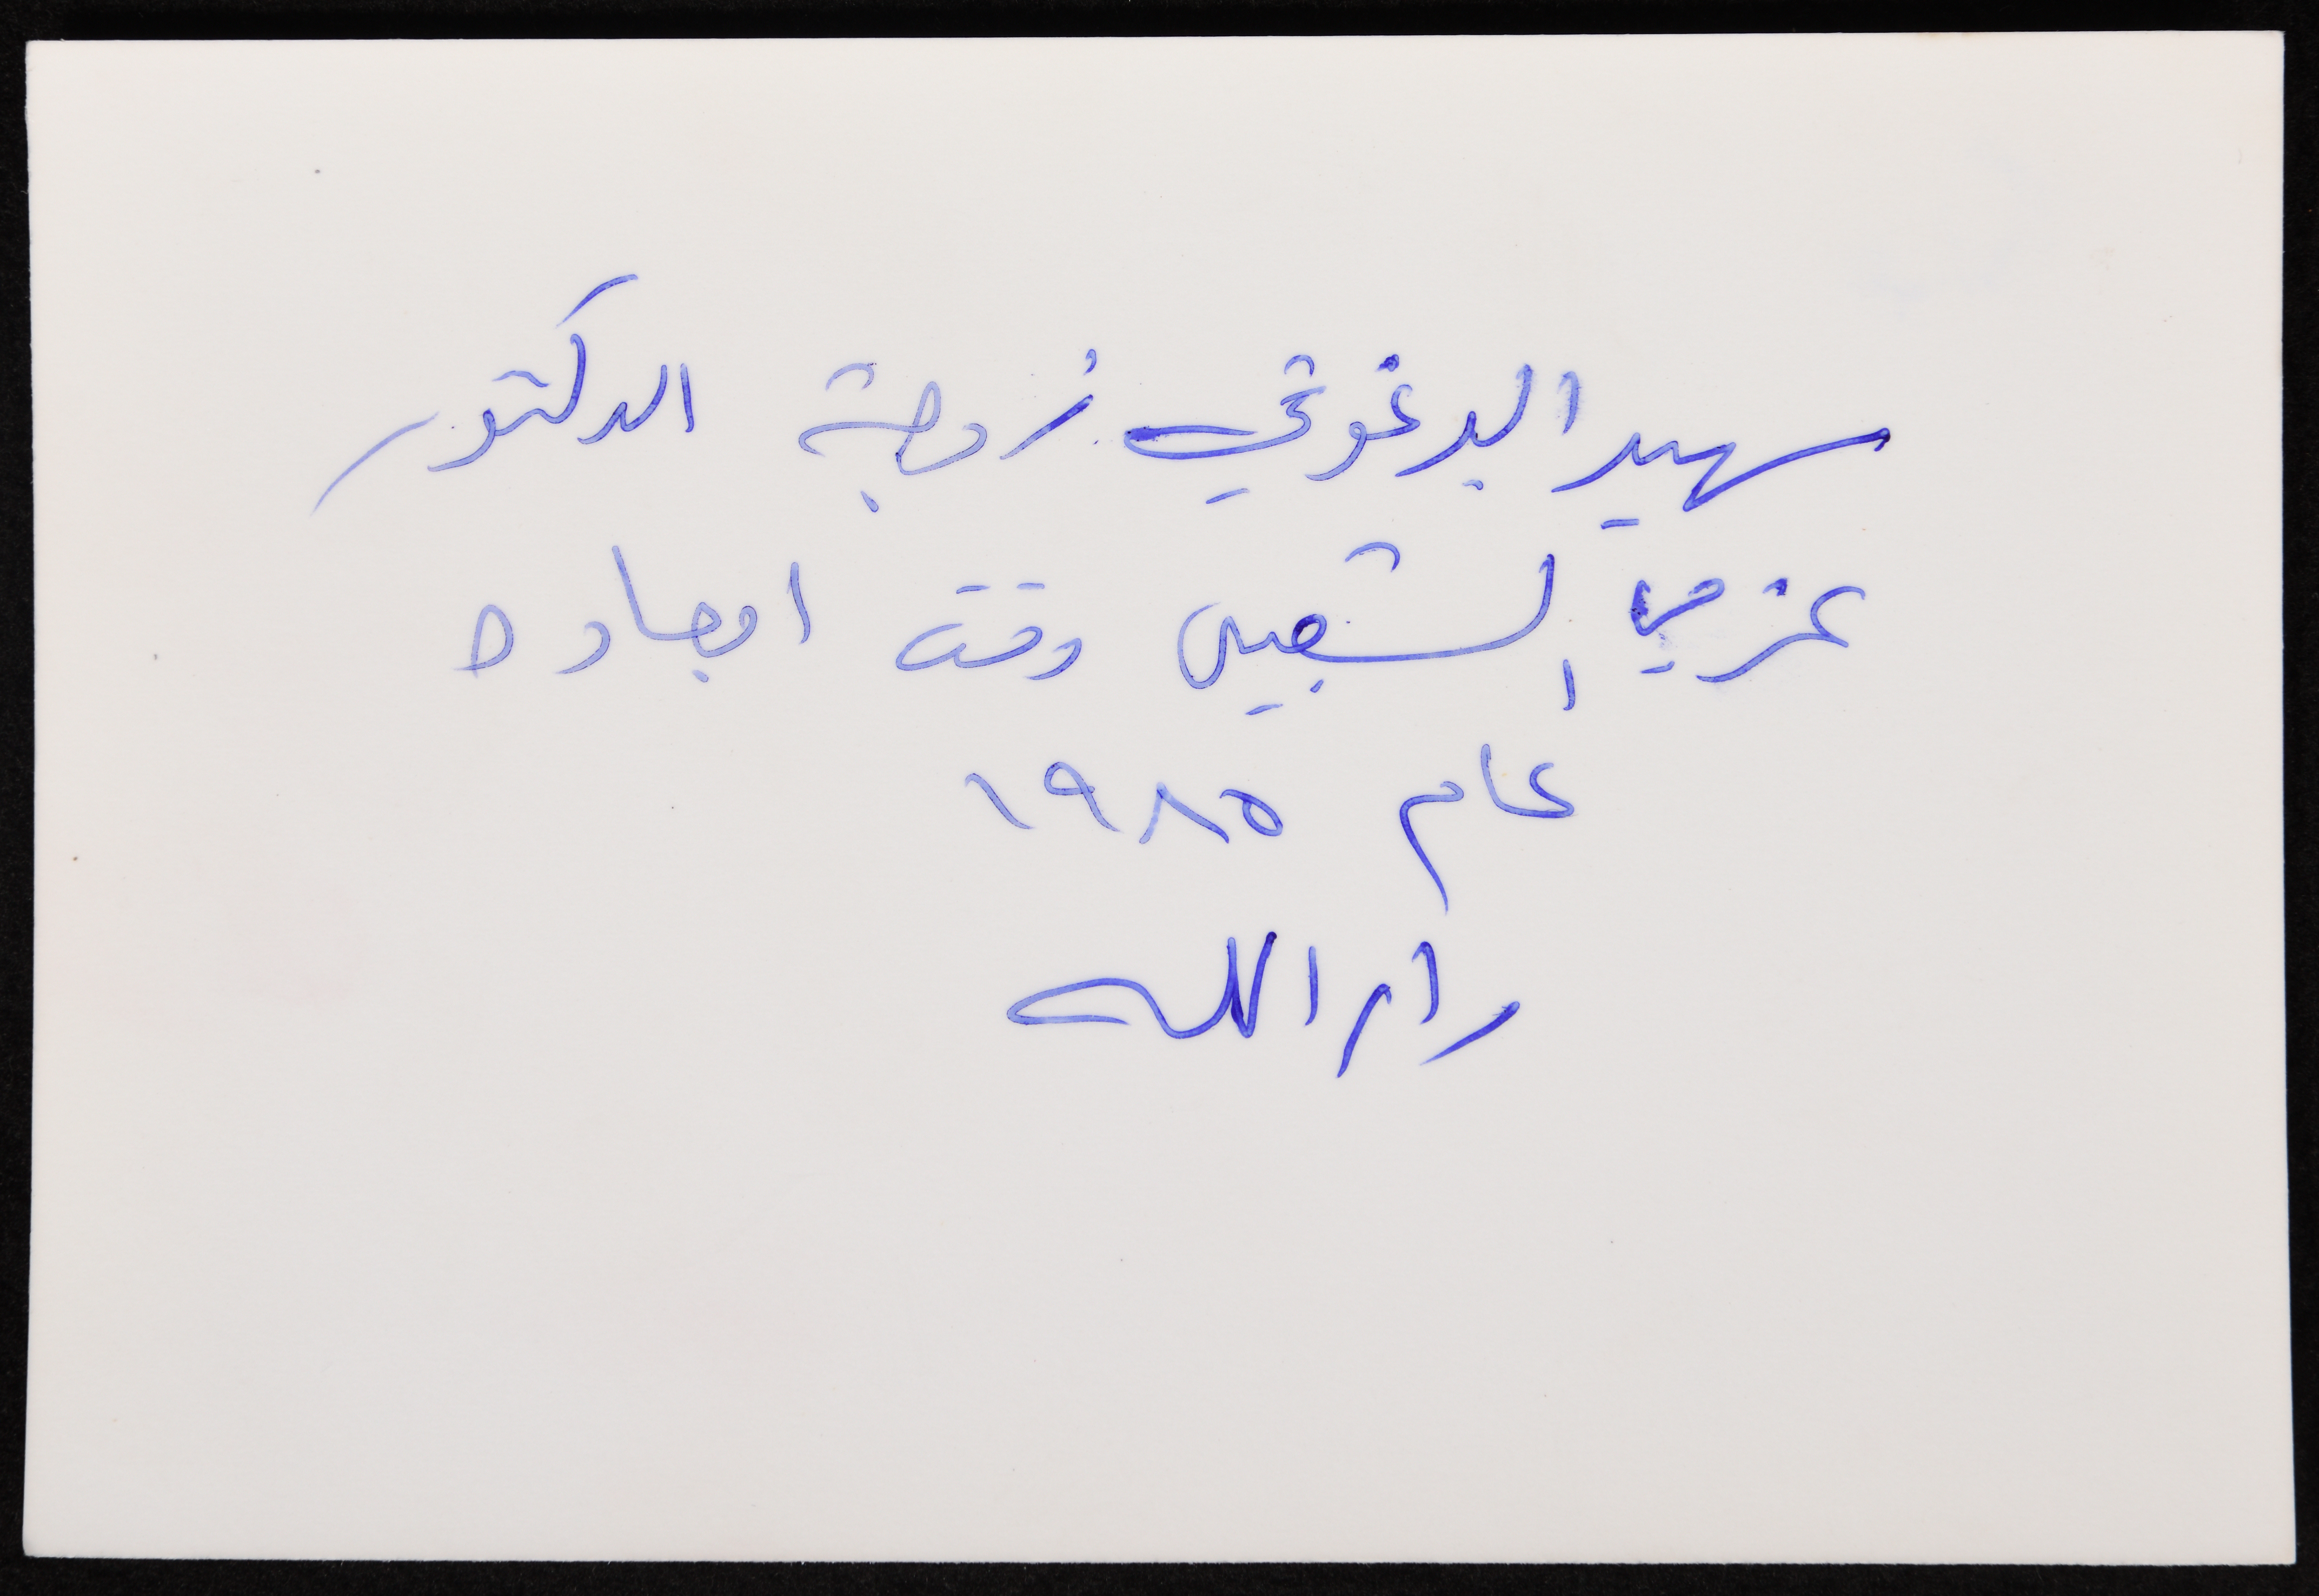 سهير البرغوثي زوجة الدكتور
عزمي الشعيبي وقت ابعاده
عام ١٩٨٥
رام الله